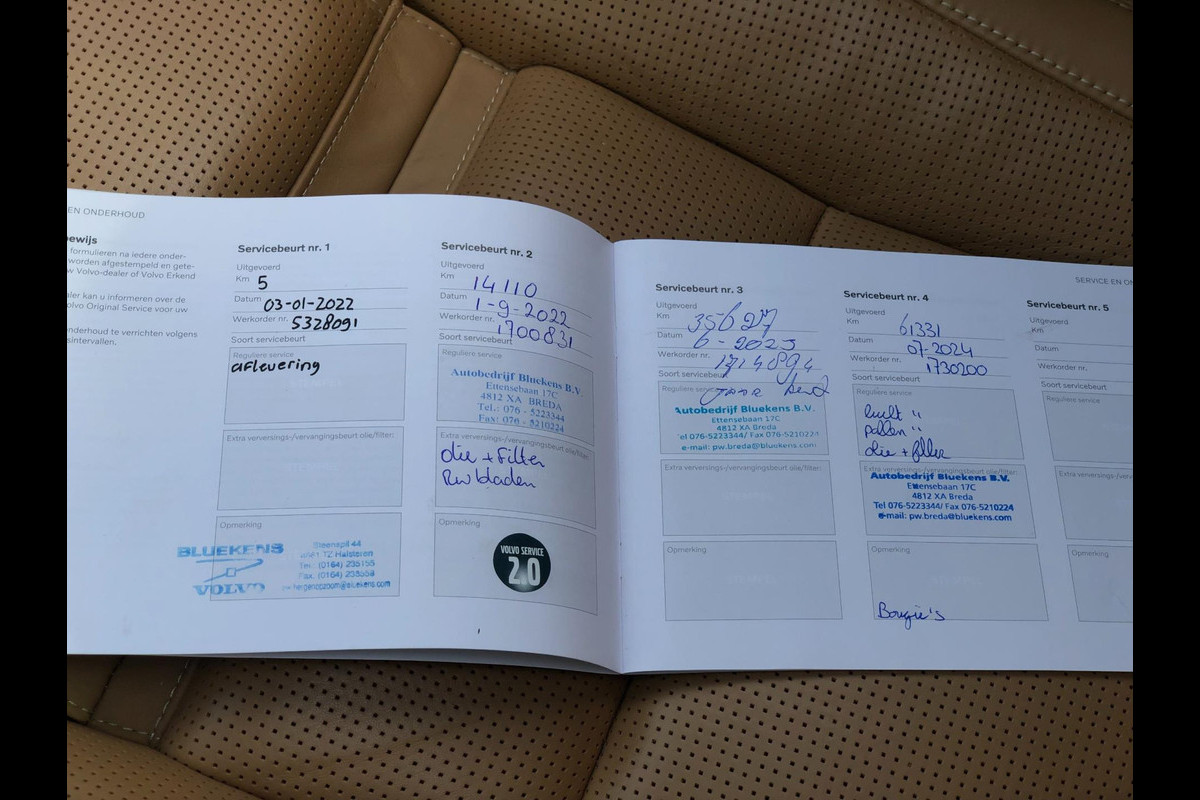 EN ONDERHOUD
ewijs
formulieren na iedere onder-
worden afgestempeld en gete-
w Volvo-dealer of Volvo Erkend
aler kan u informeren over de
olvo Original Service voor uw
nderhoud te verrichten volgens
sintervallen.
Servicebeurt nr. 1
Uitgevoerd
Km 5
Datum 03-01-2022
Werkorder nr. 5328091
Soort servicebeurt
Reguliere service
aflevering
Extra verversings-/vervangingsbeurt olie/filter:
Opmerking
BLUEKENS
VOLVO
Steenspil 44
4661 TZ Halsteren
Tel. (0164) 235155
Fax. (0164) 238558
Servicebeurt nr. 2
Uitgevoerd
Km 14110
Datum 1-9-2022
Werkorder nr. 1700831
Soort servicebeurt
Reguliere service
Autobedrijf Bluekens B.V.
Ettensebaan 17C
4812 XA BREDA
Tel.: 076 - 5223344
Fax: 076 - 5210224
Extra verversings-/vervangingsbeurt olie/filter:
olie + filter
Rw bladen
Opmerking
VOLVO SERVICE
2.0
SERVICE EN ON
Servicebeurt nr. 3
Uitgevoerd
Km 35627
Datum 6-2023
Werkorder nr. 1714894
Soort servicebeurt
Reguliere service
Autobedrijf Bluekens B.V.
Ettensebaan 17C
4812 XA Breda
Tel 076-5223344/ Fax 076-5210224
e-mail: pw.breda@bluekens.com
Extra verversings-/vervangingsbeurt olie/filter:
Opmerking
Servicebeurt nr. 4
Uitgevoerd
Km 61331
Datum 07-2024
Werkorder nr. 1730200
Soort servicebeurt
Reguliere service
lucht "
pollen "
olie + filter
Extra verversings-/vervangingsbeurt olie/filter:
Autobedrijf Bluekens B.V.
Ettensebaan 17C
4812 XA Breda
Tel 076-5223344/ Fax 076-5210224
e-mail: pw.breda@bluekens.com
Opmerking
Bougie's
Servicebeurt nr. 5
Uitgevoerd
Km
Datum
Werkorder nr.
Soort servicebeurt
Reguliere service
Extra verversings-/ve
Opmerking